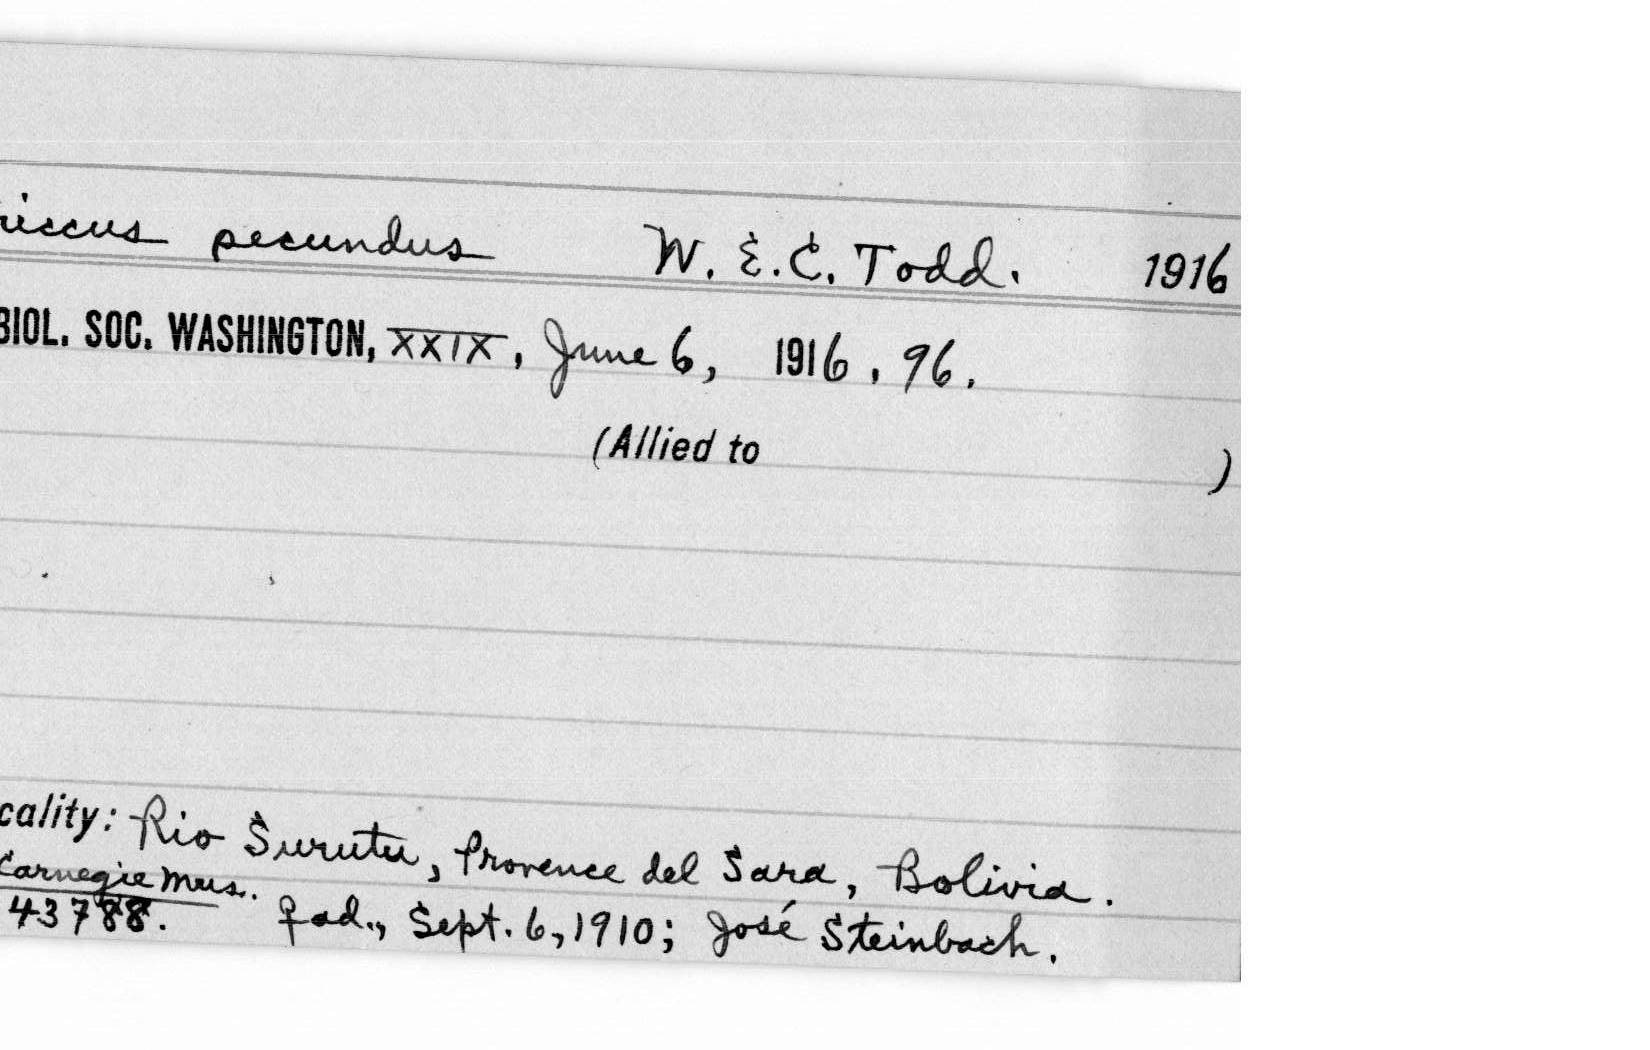 iccus pecundus W. E. C. Todd. 1916
BIOL. SOC. WASHINGTON, XXIX, June 6, 1916, 96.
(Allied to )
cality: Rio Surutu, Provence del Sara, Bolivia.
Carnegie Mus.
43788. ♀ad., Sept. 6, 1910; José Steinbach.